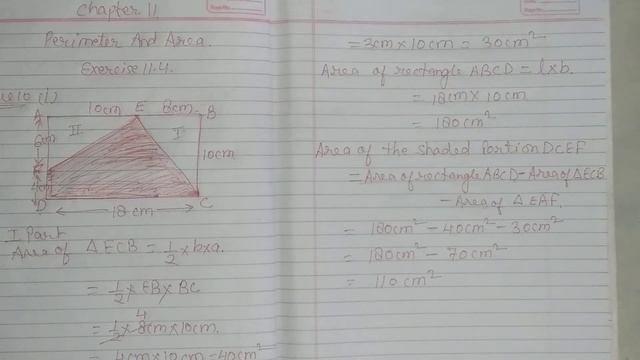 Chapter 11
Perimeter And Area.
Exercise 11.4.
10 (i)
10cm E 8cm B
A
II
I
6cm
10cm
F
4cm
D
C
18cm
I Part
Area of △ECB = 1/2 × b×a.
= 1/2 × EB × BC
4
= 1/2 × 8cm × 10cm.
= 4cm × 10cm = 40cm²
= 3cm × 10cm = 30cm²
Area of rectangle ABCD = l×b.
= 18cm × 10cm
= 180cm²
Area of the shaded Portion DCEF
= Area of rectangle ABCD - Area of △ECB
- Area of △EAF.
= 180cm² - 40cm² - 30cm²
= 180cm² - 70cm²
= 110cm²